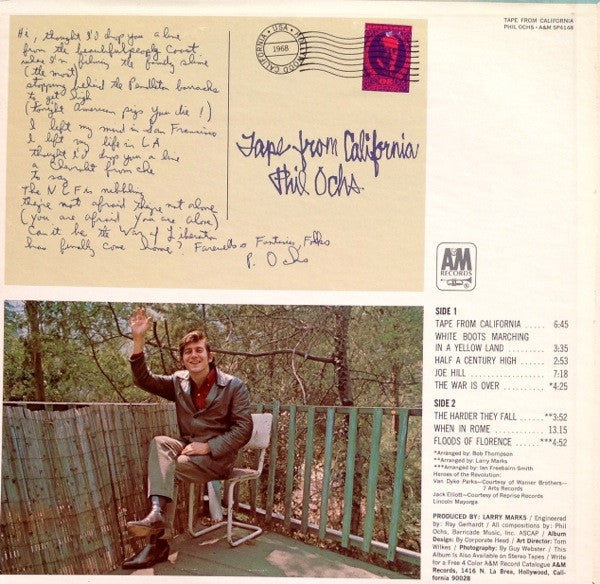 TAPE FROM CALIFORNIA
PHIL OCHS · A&M SP4148
Hi, thought I'd drop you a line
from the beautiful people Coast
where I'm fishing the
(the most)
stopping behind the Pendleton barracks
to get high
(tonight American pigs you die!)
I left my mind in San Francisco
I left my life in L A
thought I'd drop you a line
a Chevrolet from che
to say
The NLF is nibbling
they're not afraid they're not alone
(you are afraid you are alone)
Can it be the War of Liberation
has finally come home? Farewells & Fantasies, Folks
P. Ochs
HOLLYWOOD CALIFORNIA · USA ·
1968
Tape from California
Phil Ochs.
A&M
RECORDS
SIDE 1
TAPE FROM CALIFORNIA ..... 6:45
WHITE BOOTS MARCHING
IN A YELLOW LAND ......... 3:35
HALF A CENTURY HIGH ...... 2:53
JOE HILL ................. 7:18
THE WAR IS OVER ......... *4:25
SIDE 2
THE HARDER THEY FALL ..... **3:52
WHEN IN ROME ............ 13.15
FLOODS OF FLORENCE ..... ***4:52
*Arranged by: Bob Thompson
**Arranged by: Larry Marks
***Arranged by: Ian Freebairn-Smith
Heroes of the Revolution:
Van Dyke Parks—Courtesy of Warner Brothers—
7 Arts Records
Jack Elliott—Courtesy of Reprise Records
Lincoln Mayorga
PRODUCED BY: LARRY MARKS / Engineered
by: Ray Gerhardt / All compositions by: Phil
Ochs, Barricade Music, Inc. ASCAP / Album
Design: By Corporate Head / Art Director: Tom
Wilkes / Photography: By Guy Webster / This
Album Is Also Available on Stereo Tapes / Write
for a Free 4 Color A&M Record Catalogue A&M
Records, 1416 N. La Brea, Hollywood, Calif-
ornia 90028